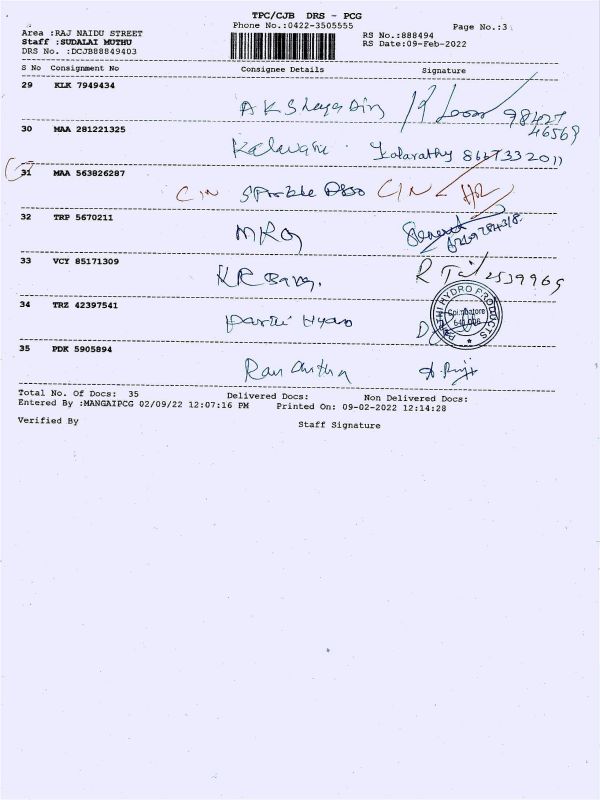 TPC/CJB DRS - PCG
Phone No.:0422-3505555
Page No.:3
Area :RAJ NAIDU STREET
Staff :SUDALAI MUTHU
DRS No. :DCJB88849403
RS No.:888494
RS Date:09-Feb-2022
S No Consignment No Consignee Details Signature
29 KLK 7949434
98427
46569
30 MAA 281221325
Kalavathy 8667332011
31 MAA 563826287
C/N C/N
32 TRP 5670211
MRG
33 VCY 85171309
KR
34 TRZ 42397541
PARANI HYDRO PRODUCTS
Coimbatore
35 PDK 5905894
Total No. Of Docs: 35 Delivered Docs: Non Delivered Docs:
Entered By :MANGAIPCG 02/09/22 12:07:16 PM Printed On: 09-02-2022 12:14:28
Verified By Staff Signature